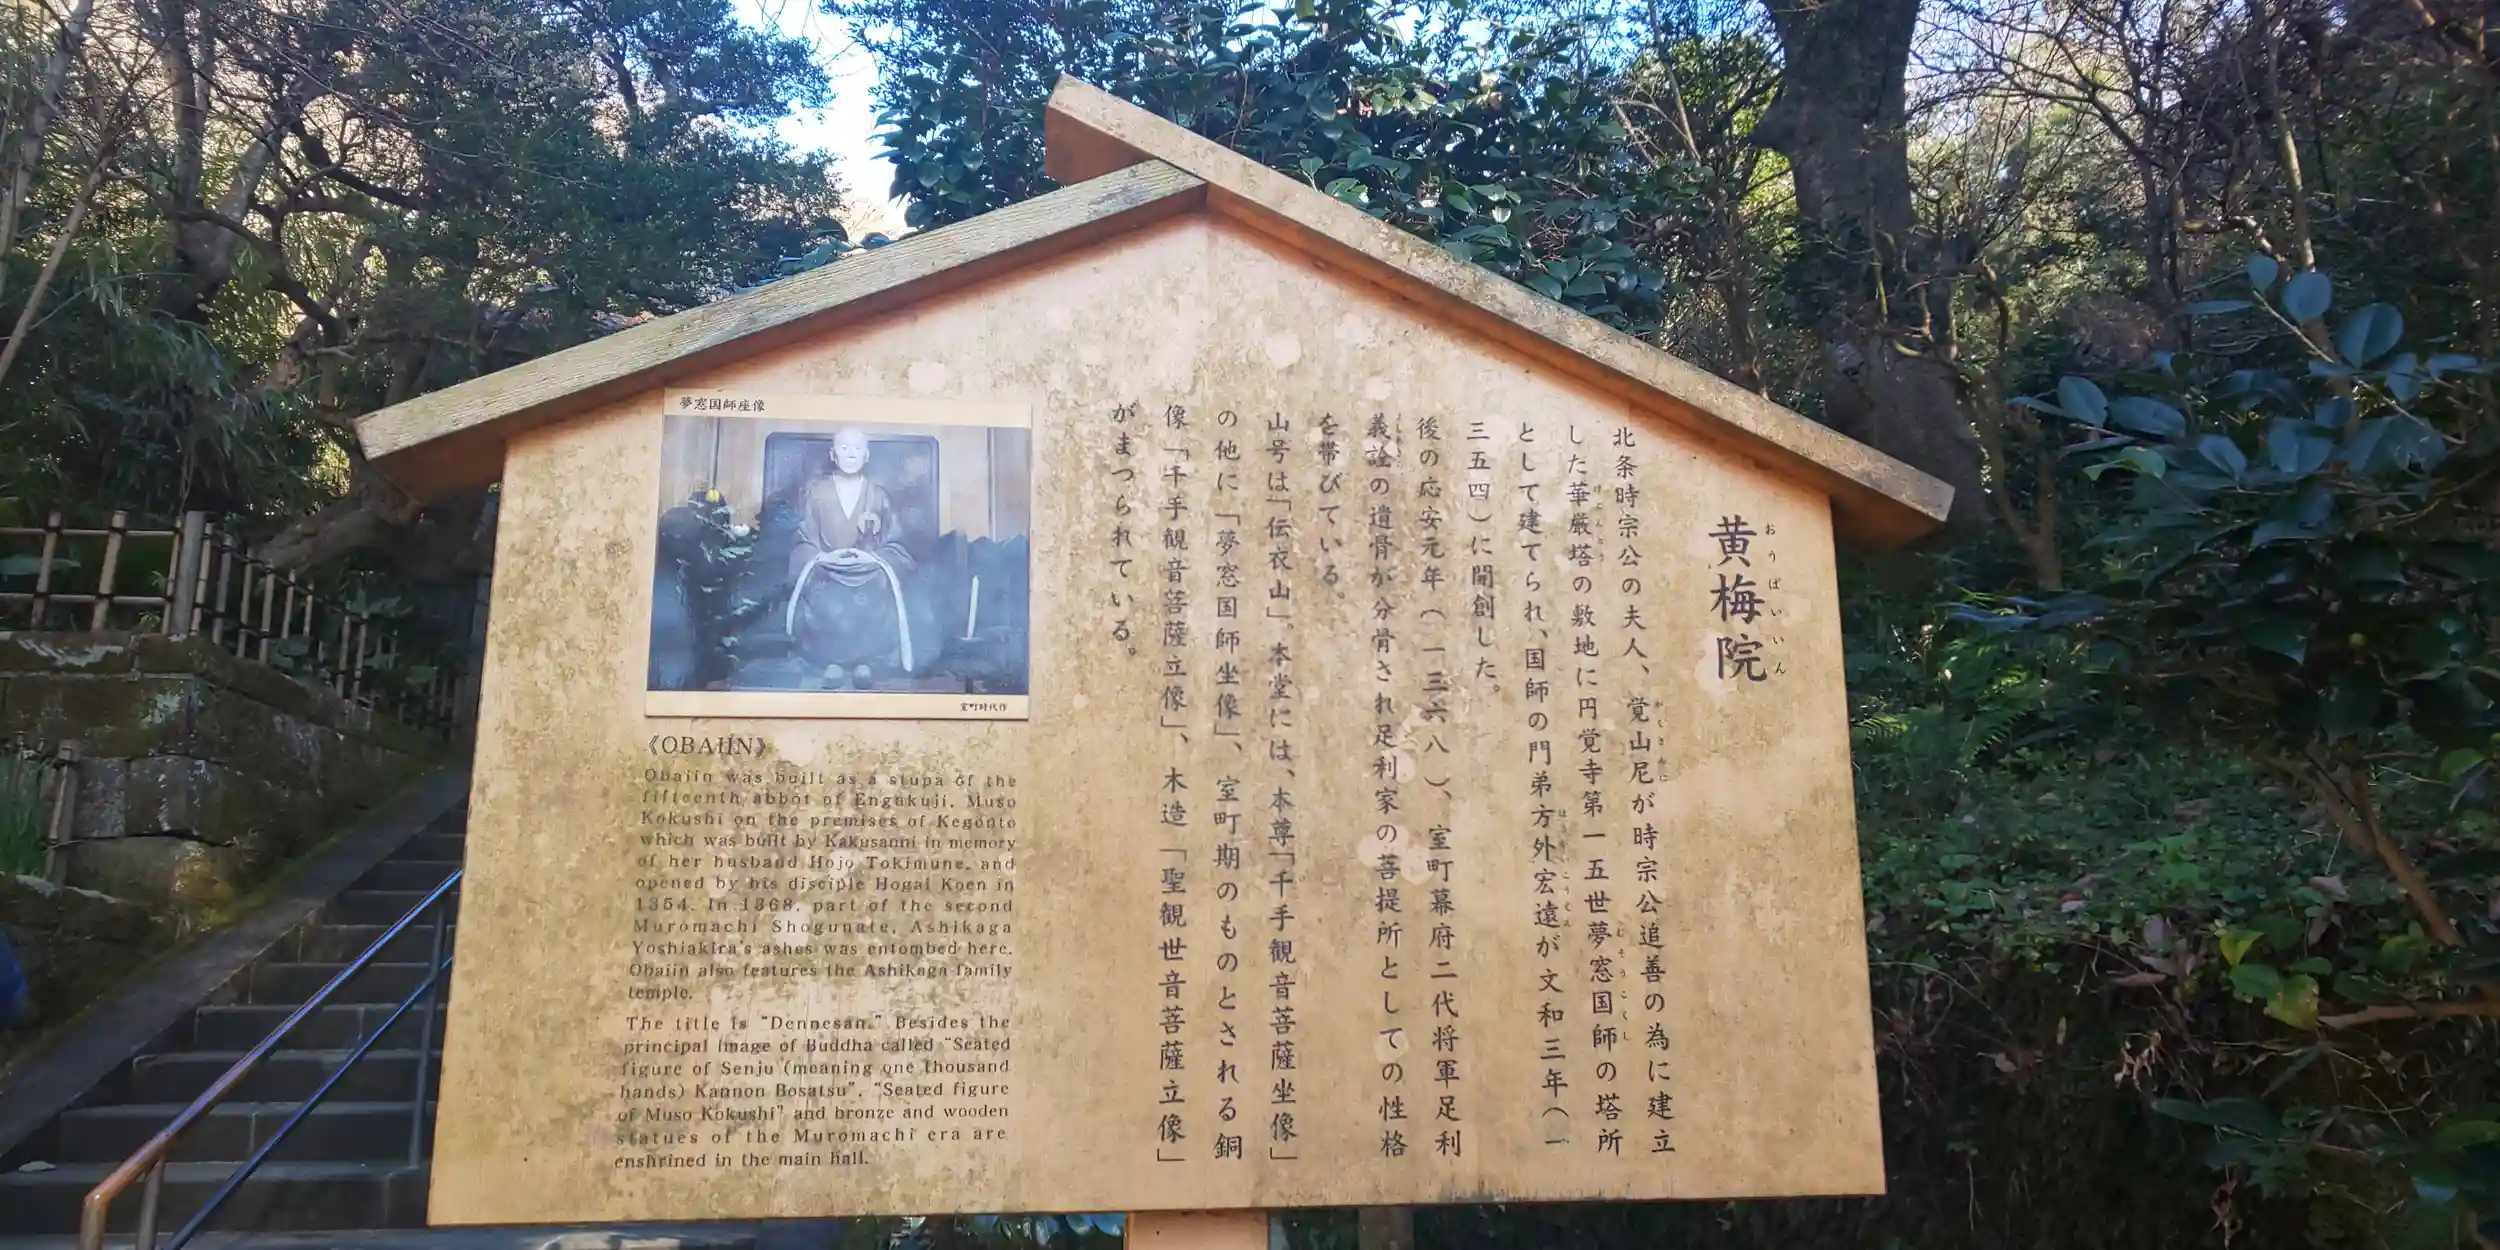 黄梅院
おうばいいん
北条時宗公の夫人、覚山尼が時宗公追善の為に建立
かくさんに
した華厳塔の敷地に円覚寺第一五世夢窓国師の塔所
けごんとう
むそうこくし
として建てられ、国師の門弟方外宏遠が文和三年(一
ほうがいこうえん
三五四)に開創した。
後の応安元年(一三六八)、室町幕府二代将軍足利
義詮の遺骨が分骨され足利家の菩提所としての性格
よしあきら
を帯びている。
山号は「伝衣山」。本堂には、本尊「千手観音菩薩坐像」
の他に「夢窓国師坐像」、室町期のものとされる銅
像「千手観音菩薩立像」、木造「聖観世音菩薩立像」
がまつられている。
夢窓国師座像
室町時代作
《OBAIIN》
Obaiin was built as a stupa of the
fifteenth abbot of Engakuji, Muso
Kokushi on the premises of Kegonto
which was built by Kakusanni in memory
of her husband Hojo Tokimune, and
opened by his disciple Hogai Koen in
1354. In 1368, part of the second
Muromachi Shogunate, Ashikaga
Yoshiakira's ashes was entombed here.
Obaiin also features the Ashikaga family
temple.
The title is "Dennesan." Besides the
principal image of Buddha called "Seated
figure of Senju (meaning one thousand
hands) Kannon Bosatsu", "Seated figure
of Muso Kokushi" and bronze and wooden
statues of the Muromachi era are
enshrined in the main hall.